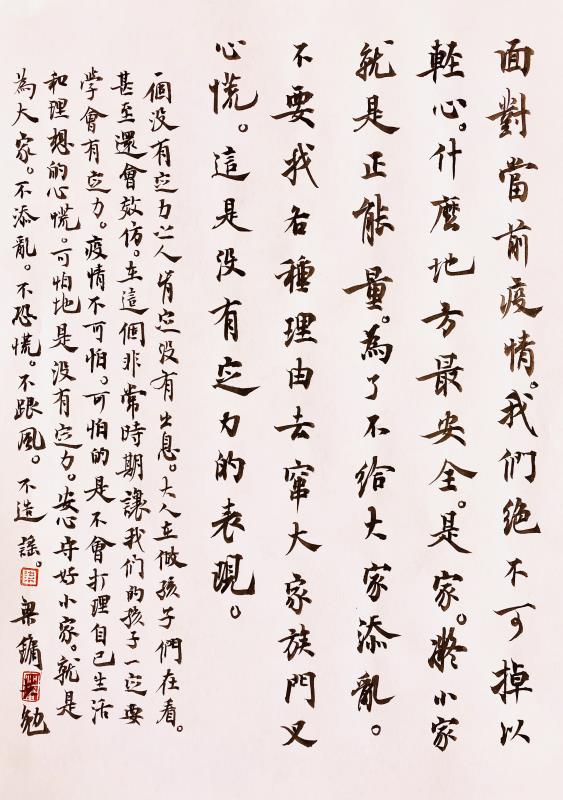 面對當前疫情。我們絕不可掉以
輕心。什麼地方最安全。是家。凝小家
就是正能量。為了不給大家添亂。
不要找各種理由去窜大家族門叉
心慌。這是没有定力的表現。
一個没有定力之人肯定没有出息。大人在做孩子們在看。
甚至還會效仿。在這個非常時期讓我們的孩子一定要
学會有定力。疫情不可怕。可怕的是不會打理自已生活
和理想的心慌。可怕地是没有定力。安心守好小家。就是
為大家。不添亂。不恐慌。不跟風。不造謠。梁鏞共勉